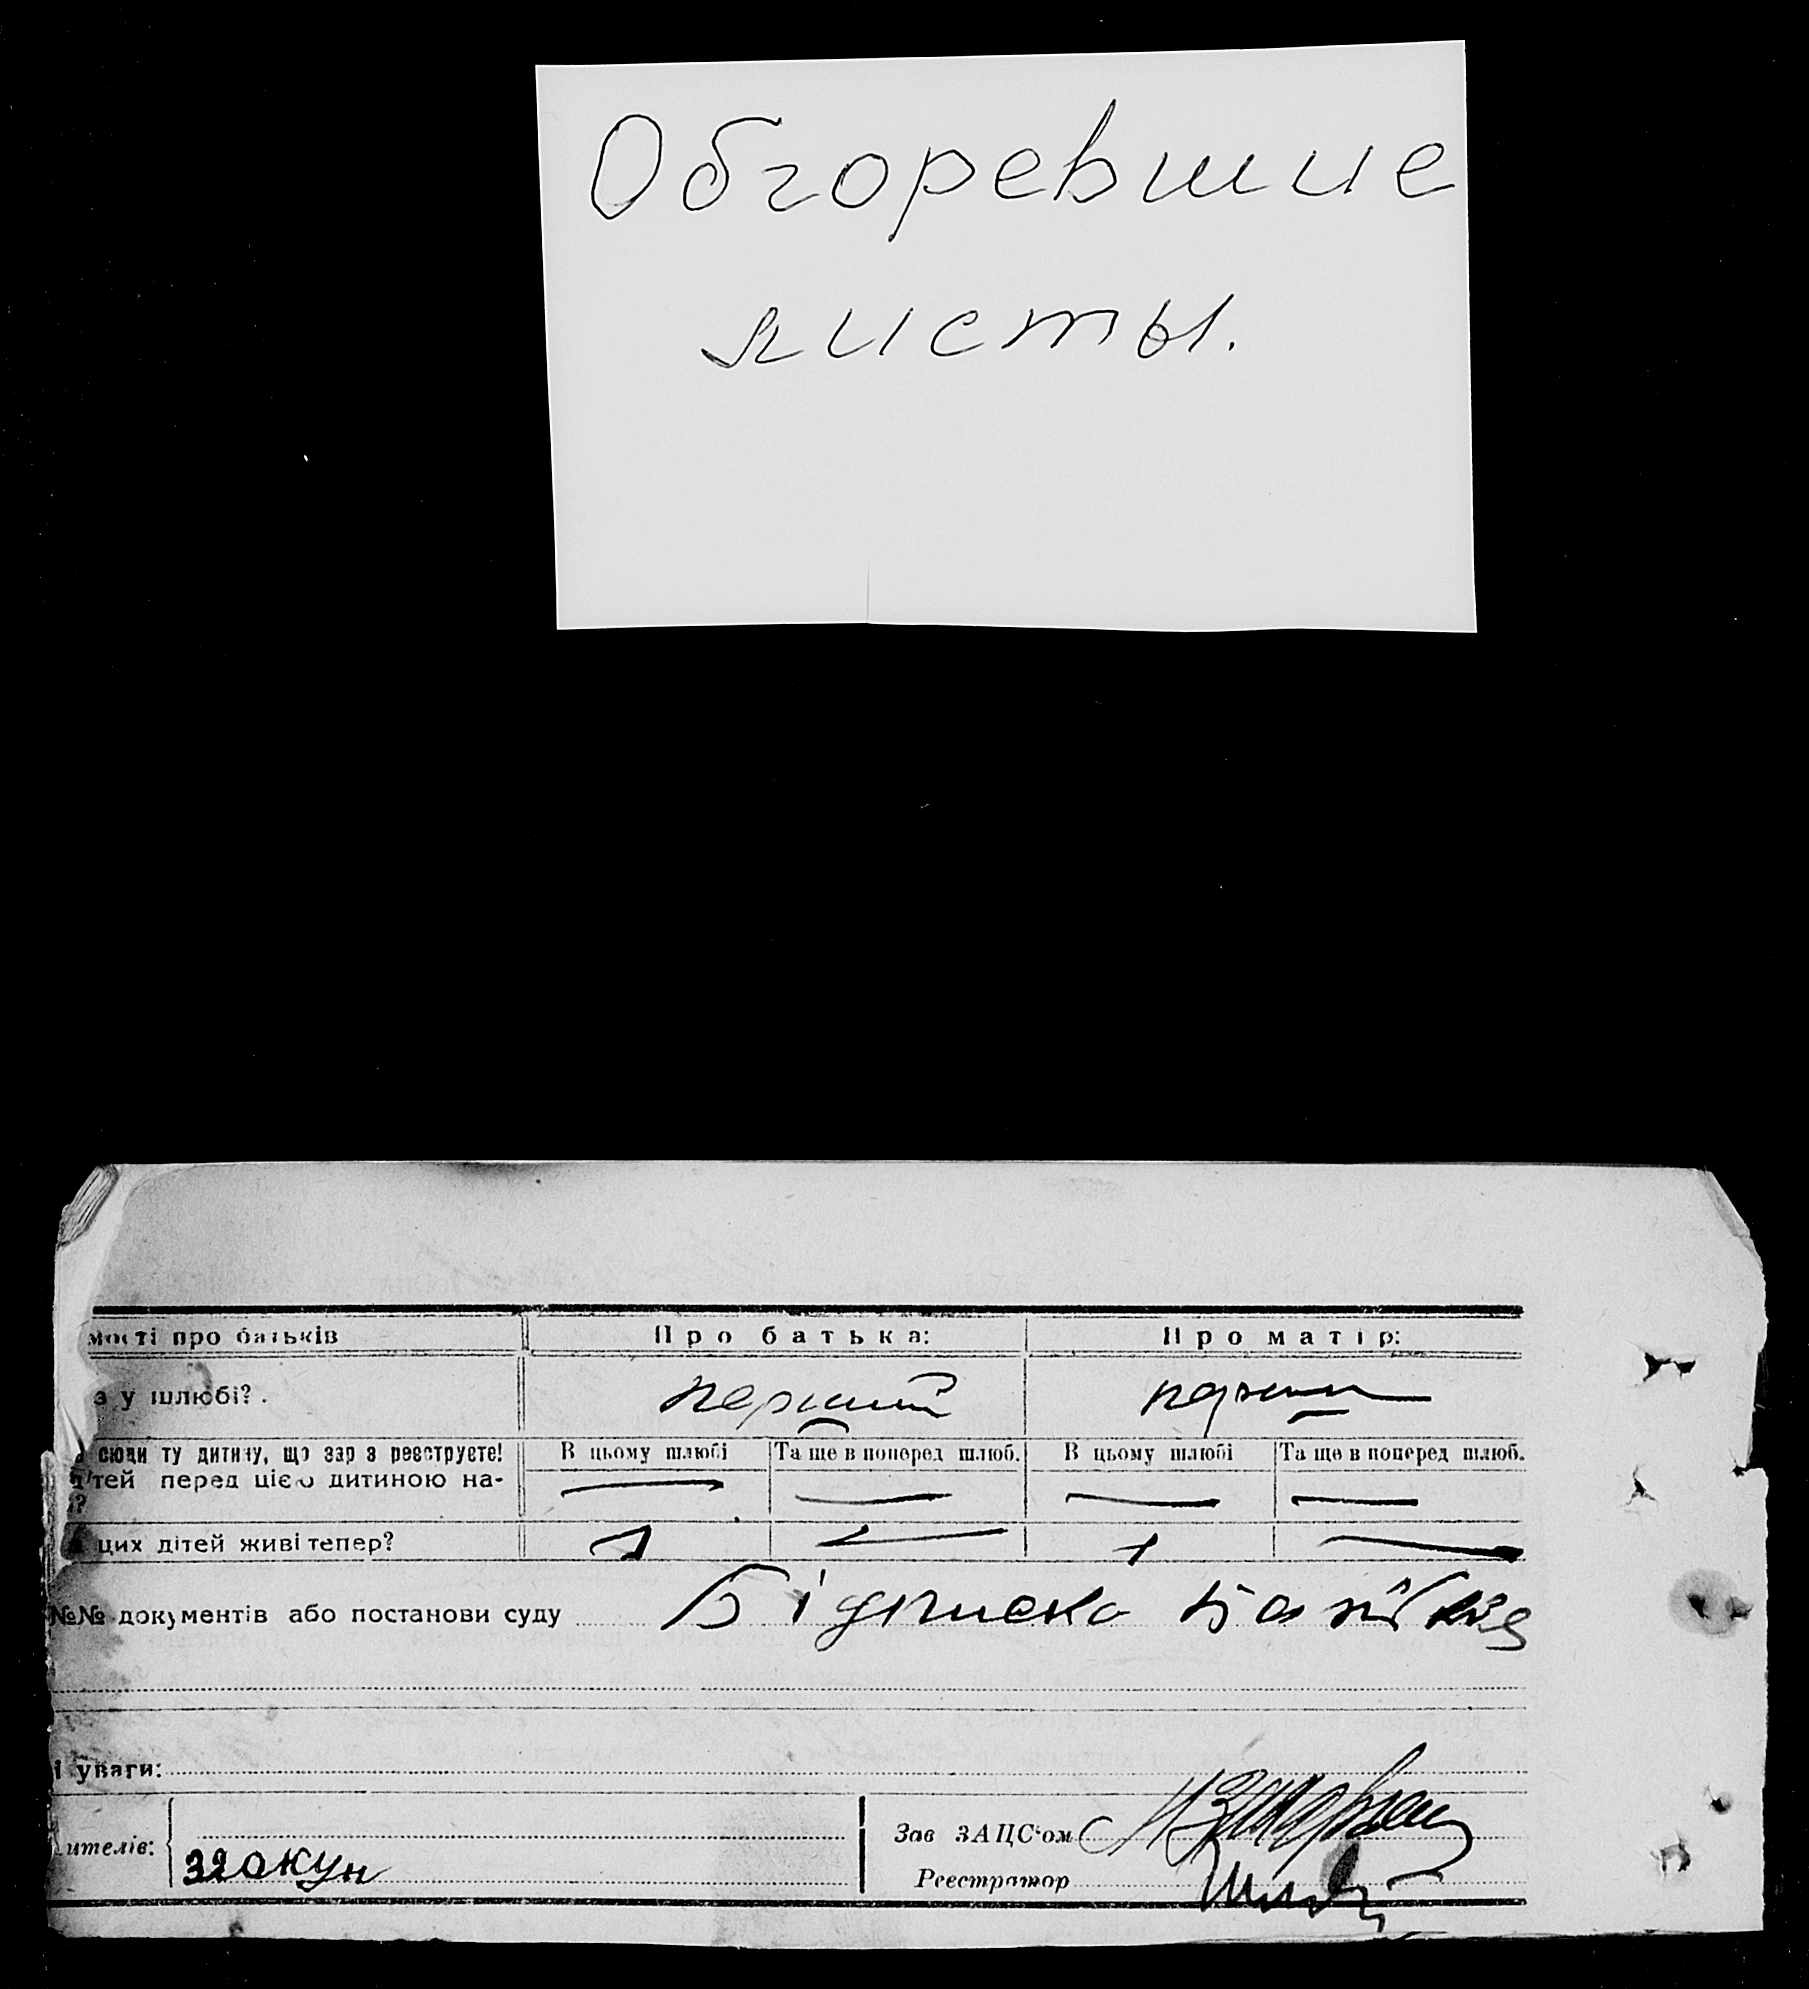 Обгоревшие
листы.
мості про батьків
Про батька:
Про матір:
з у шлюбі?
перший
перший
сюди ту дитину, що зар з реєструєте!
В цьому шлюбі
Та ще в поперед шлюб.
В цьому шлюбі
Та ще в поперед шлюб.
тей перед цією дитиною на-
?
цих дітей живі тепер?
1
1
№№ документів або постанови суду
і уваги:
Зав ЗАЦС'ом
ителів:
Реєстратор